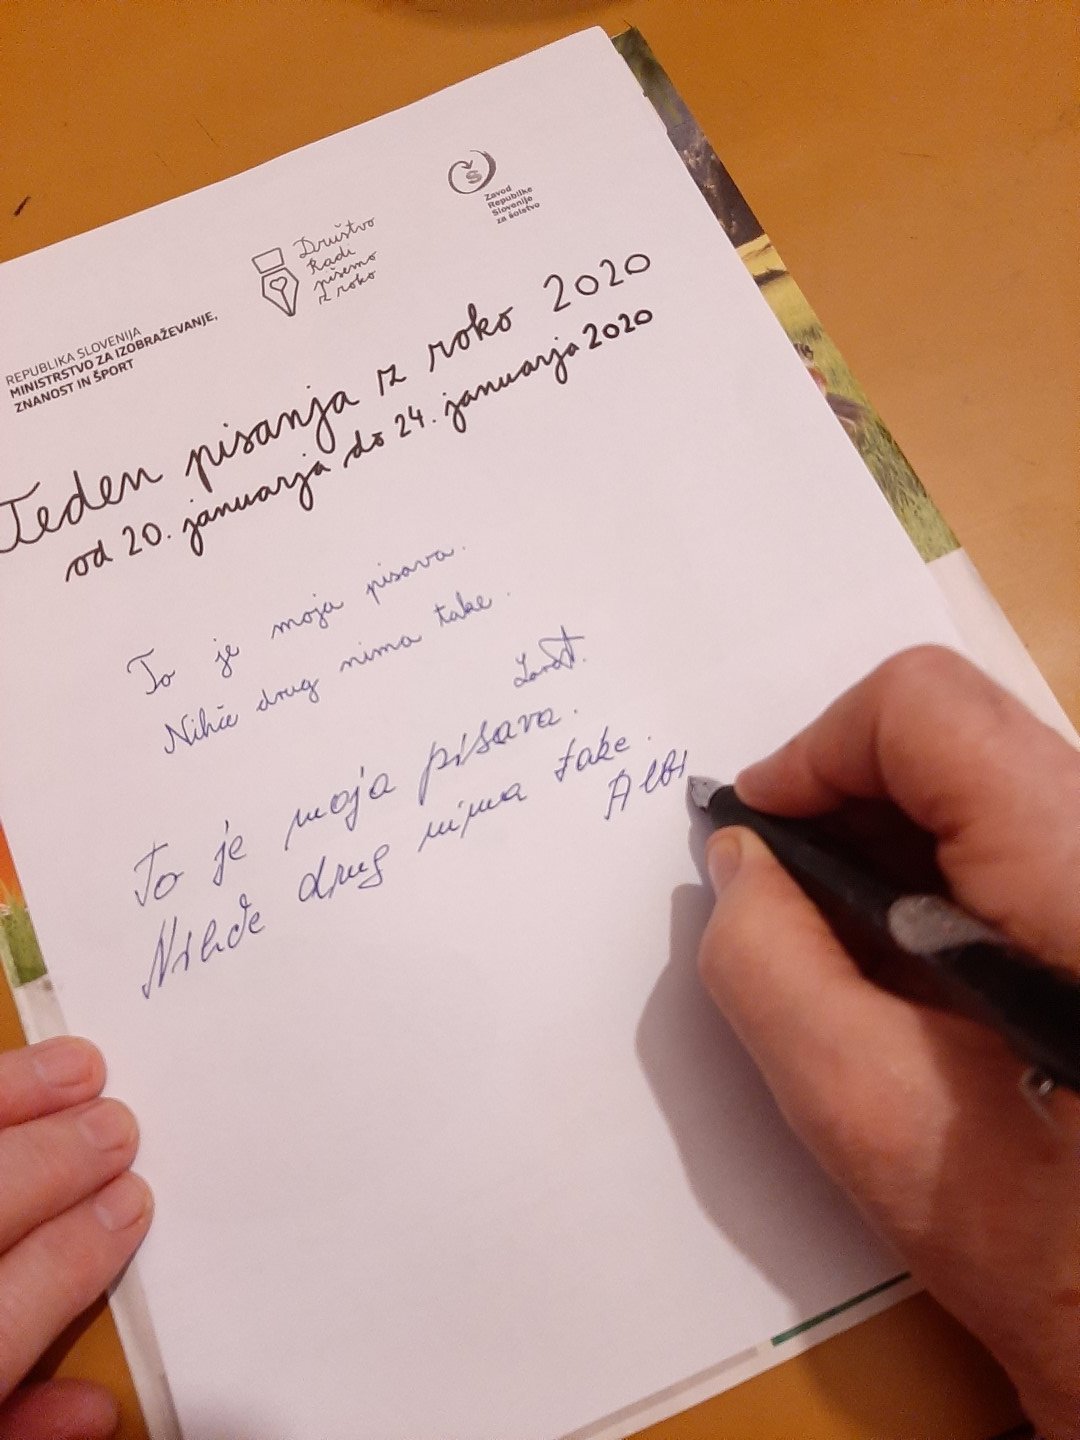 REPUBLIKA SLOVENIJA
MINISTRSTVO ZA IZOBRAŽEVANJE,
ZNANOST IN ŠPORT
Društvo
Radi
pišemo
z roko
Zavod
Republike
Slovenije
za šolstvo
Teden pisanja z roko 2020
od 20. januarja do 24. januarja 2020
To je moja pisava.
Nihče drug nima take.
To je moja pisava.
Nihče drug nima take.
Albi